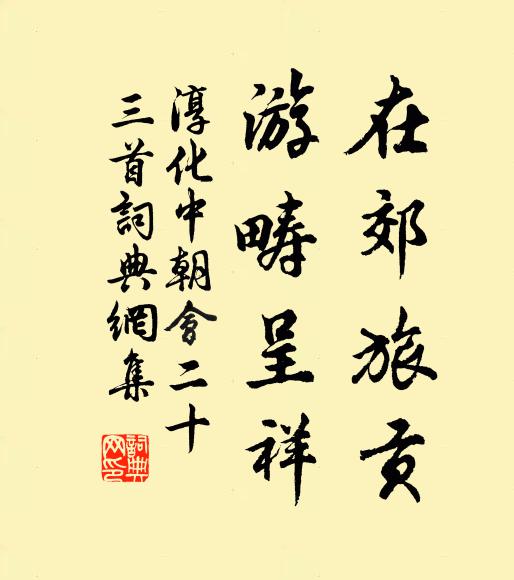 在郊旅贡
游畴呈祥
淳化中朝會二十
三首詞典網集
詞典网印